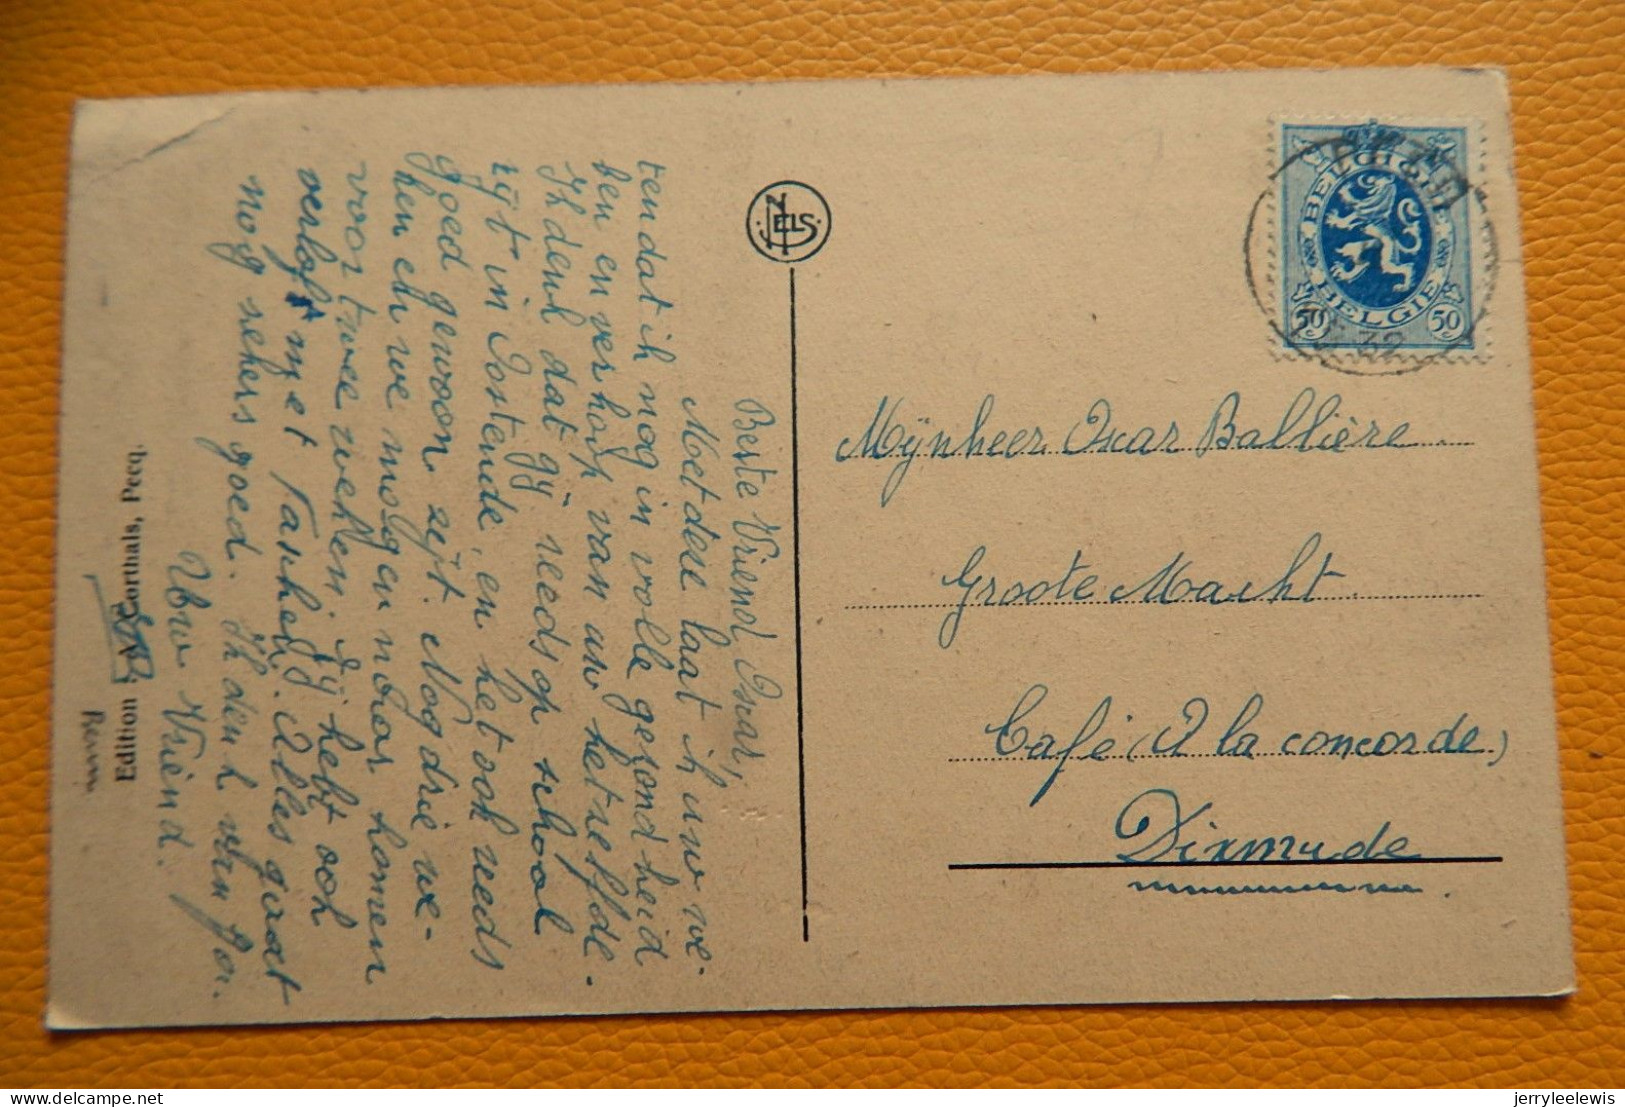 Beste Vriend Oscar,
Met dese laat ik uw we-
ten dat ik nog in volle gezondheid
ben en verhoop van uw hetzelfde.
Ik denk dat gij reeds op school
zijt in Oostende, en het ook reeds
goed gewoon zijt. Nog drie we-
ken eer we mogen naar komen
voor twee weken. Gij hebt ook
verlof met Paschen. Alles gaat
nog zekers goed. Ik denk van
Uw Vriend.
Edition A. Corthals, Pecq.
NELS
BELGIQUE
BELGIE
50 50
32
Mijnheer Oscar Ballière
Groote Markt
Café (A la concorde)
Dixmude
jerryleelewis
delcampe.net